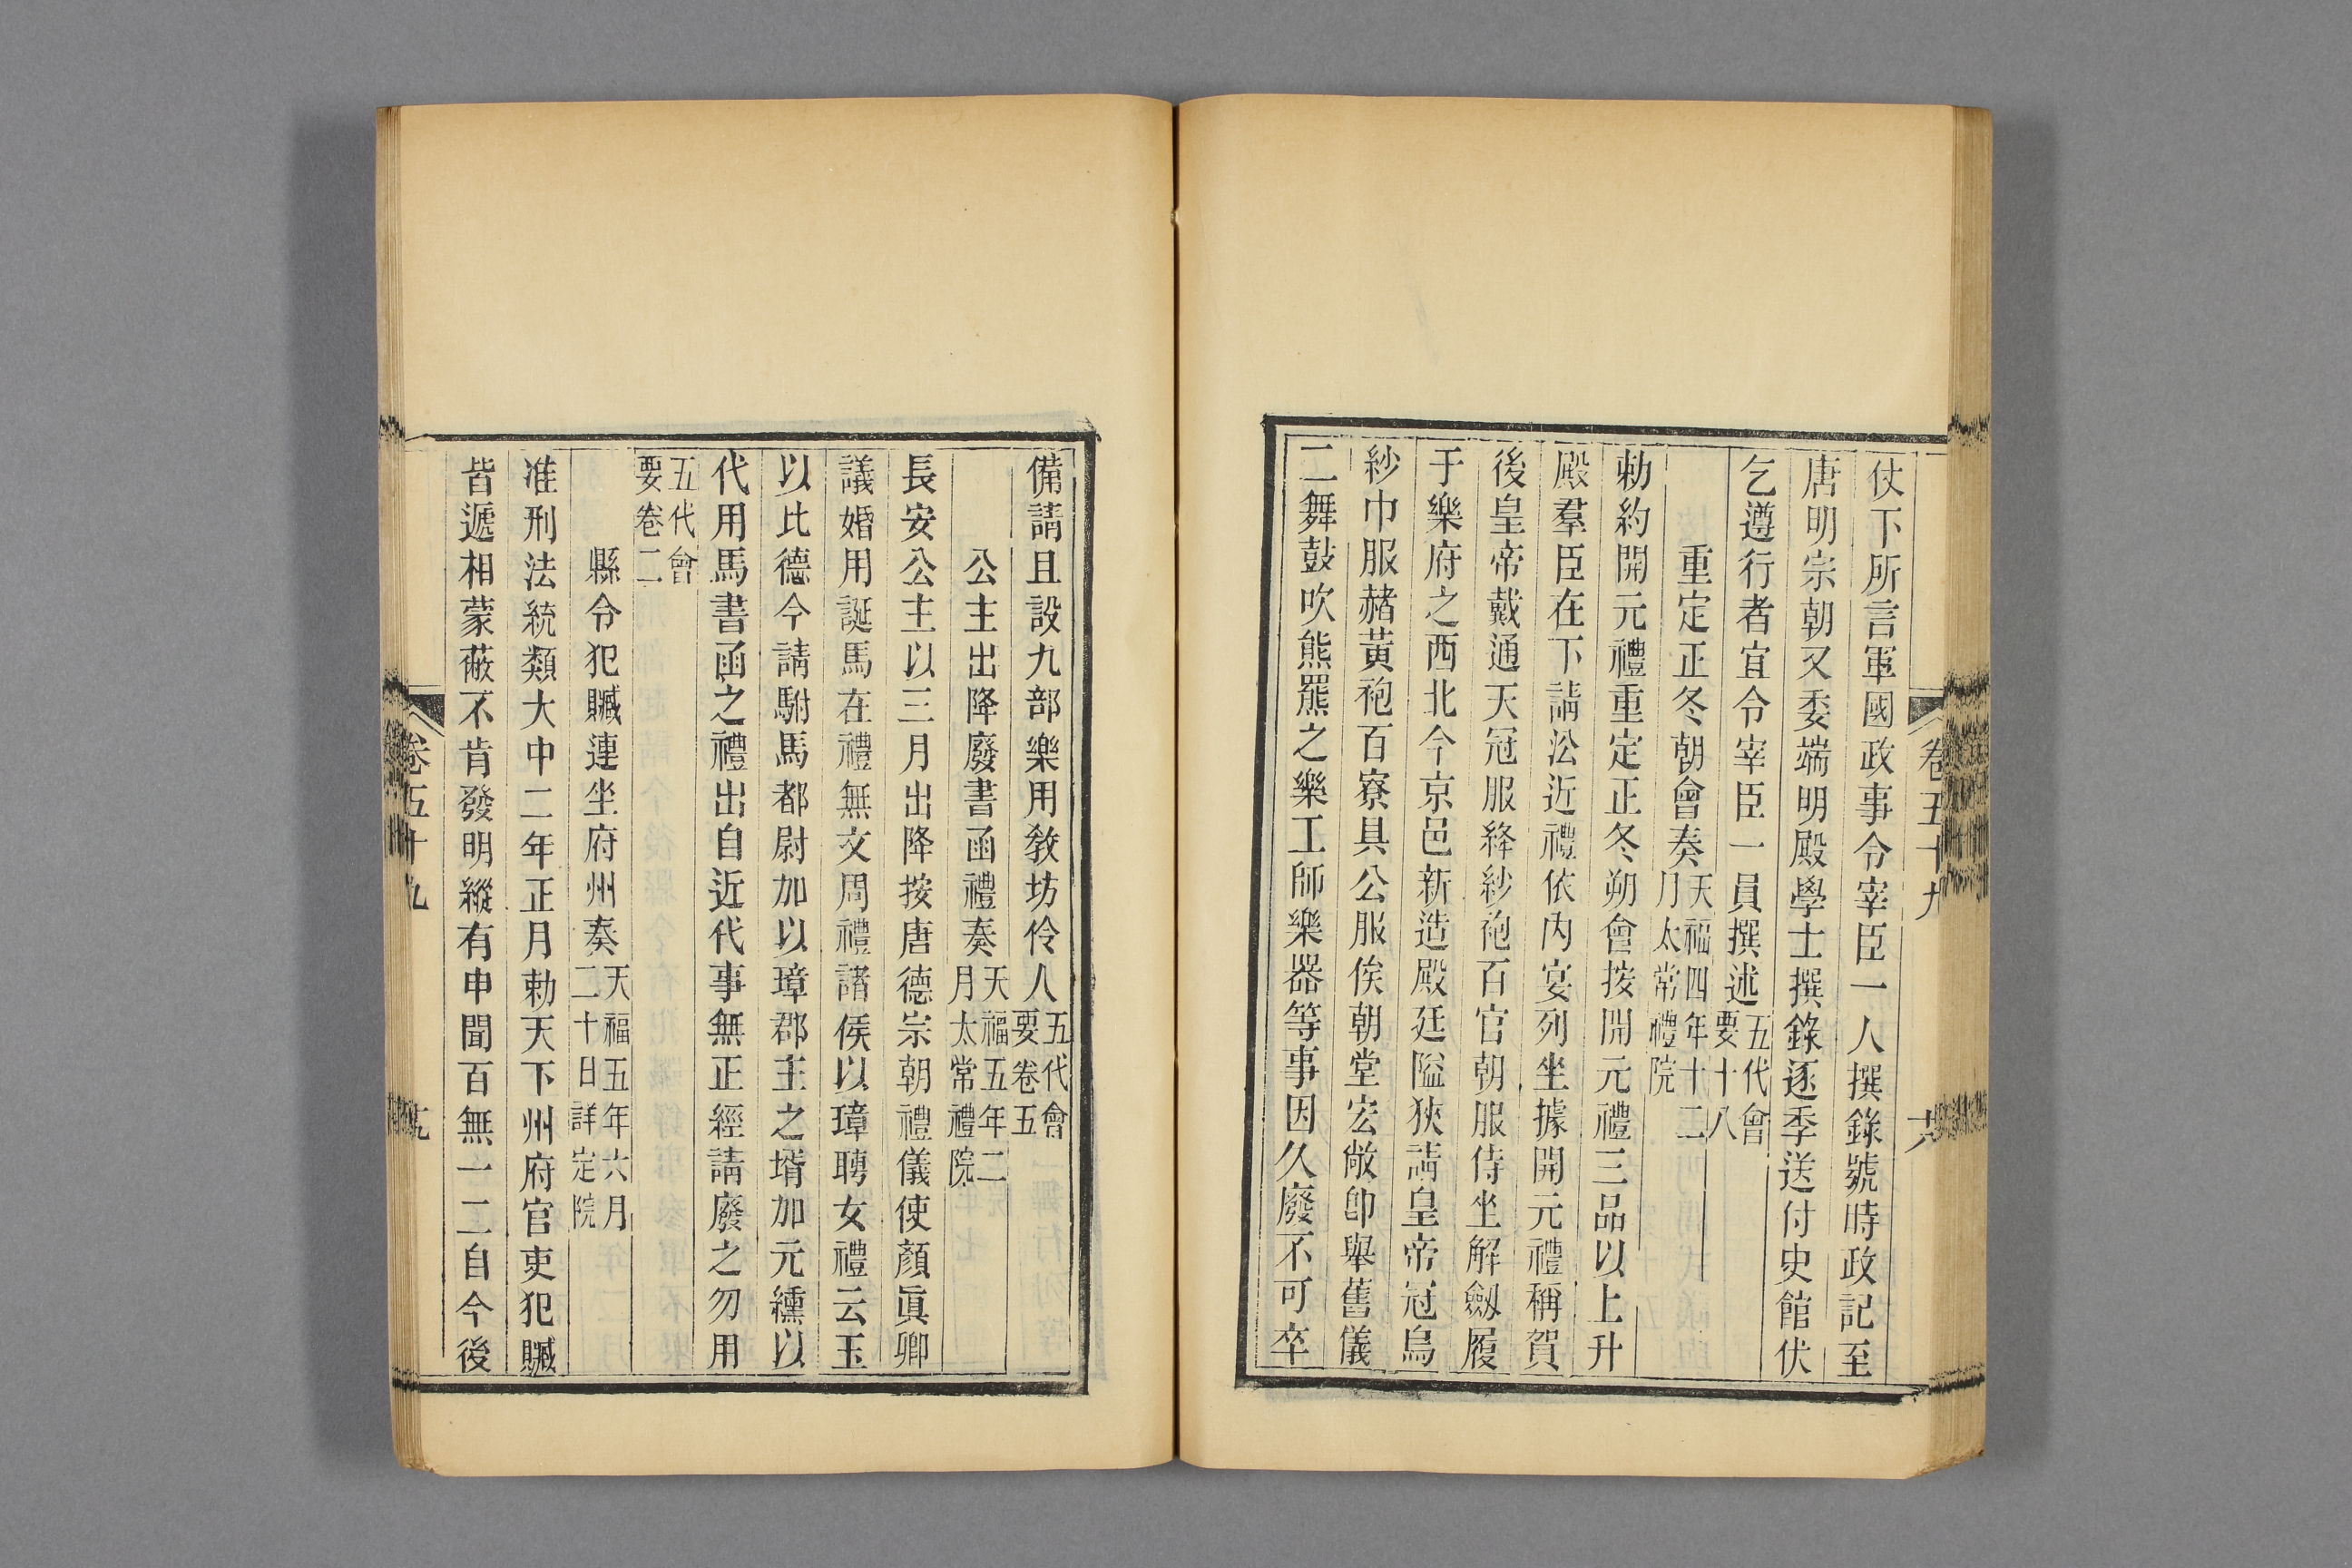 卷五十九
仗下所言軍國政事令宰臣一人撰錄號時政記至
唐明宗朝又委端明殿學士撰錄逐季送付史館伏
乞遵行者宜令宰臣一員撰述五代會要十八
重定正冬朝會奏天福四年十二月太常禮院
勅約開元禮重定正冬朔會按開元禮三品以上升
殿羣臣在下請㳂近禮依內宴列坐據開元禮稱賀
後皇帝戴通天冠服絳紗袍百官朝服侍坐解劔履
于樂府之西北今京邑新造殿廷隘狹請皇帝冠烏
紗巾服赭黃袍百寮具公服俟朝堂宏敞卽舉舊儀
二舞鼓吹熊羆之樂工師樂器等事因久廢不可卒
備請且設九部樂用敎坊伶人五代會要卷五
公主出降廢書函禮奏天福五年二月太常禮院
長安公主以三月出降按唐德宗朝禮儀使顏眞卿
議婚用誕馬在禮無文周禮諸侯以璋聘女禮云玉
以比德今請駙馬都尉加以璋郡主之壻加元纁以
代用馬書函之禮出自近代事無正經請廢之勿用
五代會要卷二
縣令犯贓連坐府州奏天福五年六月二十日詳定院
准刑法統類大中二年正月勅天下州府官吏犯贓
皆遞相蒙蔽不肯發明縱有申聞百無一二自今後
卷五十九